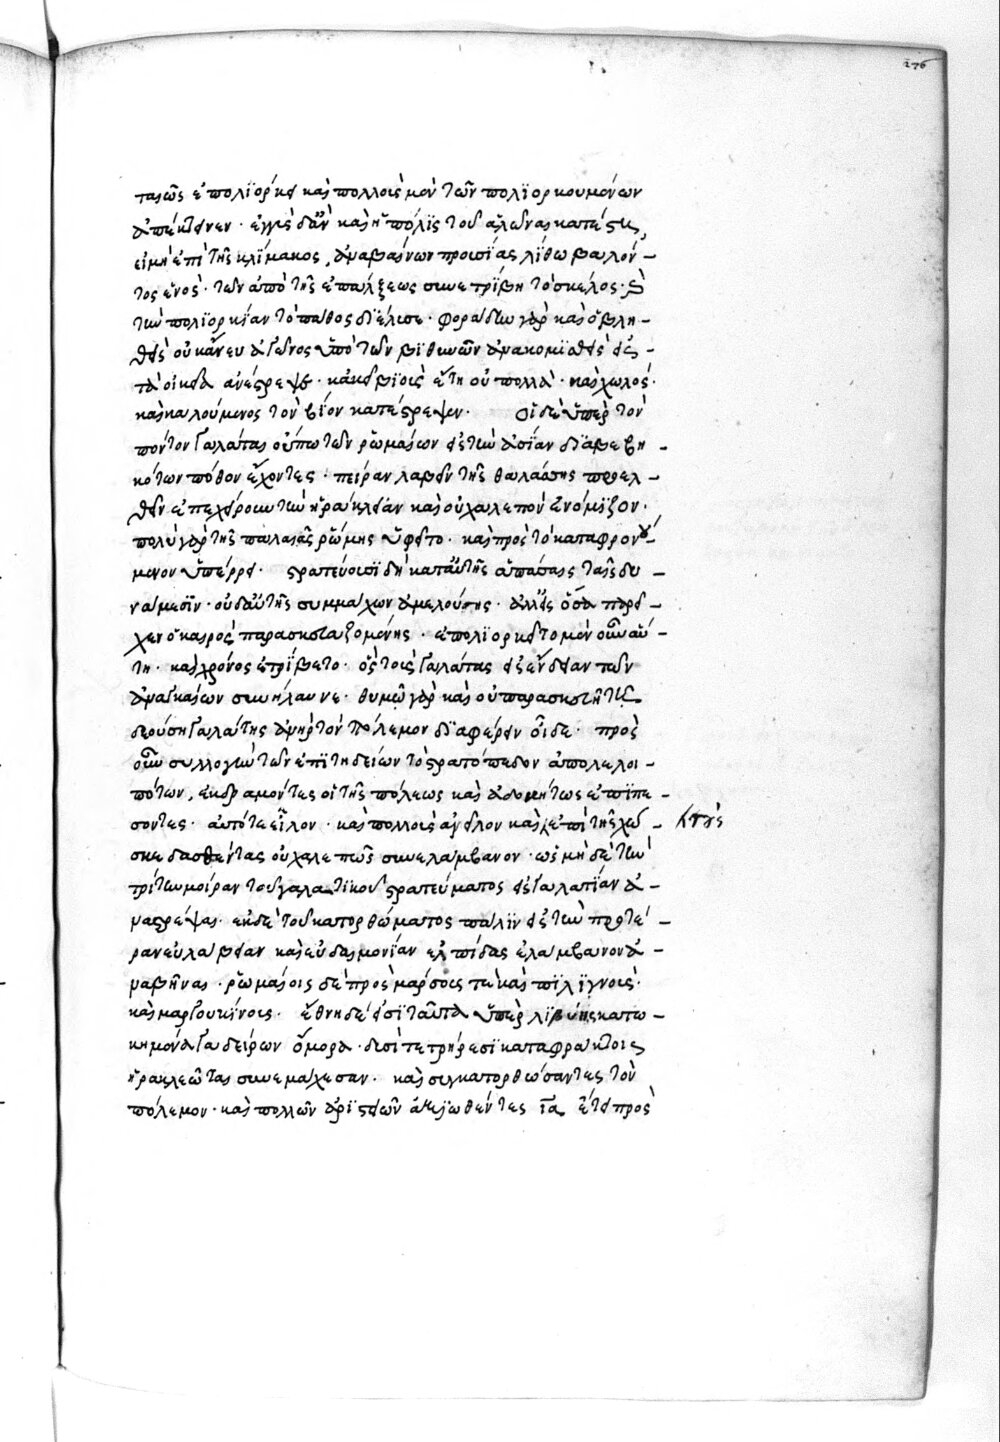 276
ταιῶς ἐπολϊόρκει καὶ πολλοὺς μὲν τῶν πολϊορκουμένων
ἀπέκτεινεν· ἐγγὺς δ' ἂν καὶ ἡ πόλϊς τοῦ ἁλῶναι κατέστη,
εἰ μὴ ἐπὶ τῆς κλίμακος, ἀναβαίνων προυσίας λίθω βαλόν-
τος ἑνὸς· τῶν ἀπὸ τῆς ἐπάλξεως συνετρίβη τὸ σκέλος· καὶ
τὴν πολϊορκίαν τὸ πάθος διέλυσε· φοράδην γὰρ καὶ ὁ βλη-
θεὶς οὐκ ἄνευ ἀγῶνος ὑπὸ τῶν βϊθυνῶν ἀνακομϊσθεὶς εἰς
τὰ οἰκεῖα ἀνέστρεψε· κἀκεῖ βϊοὺς ἔτη οὐ πολλὰ· καὶ χωλὸς·
καὶ καλούμενος τὸν βίον κατέστρεψεν· οἱ δὲ ὑπὲρ τὸν
πόντον Γαλάται οὔπω τῶν ῥωμαίων εἰς τὴν ἀσίαν διαβεβη-
κότων πόθον ἔχοντες· πεῖραν λαβεῖν τῆς θαλάσσης προσελ-
θεῖν ἐπεχείρουν τὴν ἡράκλειαν καὶ οὐ χαλεπὸν ἐνόμϊζον·
πολὺ γὰρ τῆς παλαιᾶς ῥώμης ὑφεῖτο· καὶ πρὸς τὸ καταφρονού-
μενον ὑπέρρει· στρατεύουσϊ δὴ κατ' αὐτῆς ἁπάσαις ταῖς δυ-
νάμεσϊν· οὐδ' αὐτῆς συμμάχων ἀμελούσης· ἀλλ' εἰς ὅσα παρεῖ-
χεν ὁ καιρὸς παρασκευαζομένης· ἐπολϊορκεῖτο μὲν οὖν αὕ-
τη· καὶ χρόνος ἐτρίβετο· ὃς τοὺς Γαλάτας εἰς ἔνδειαν τῶν
ἀναγκαίων συνήλαυνε· θυμῷ γὰρ καὶ οὐ παρασκευῇ τῇ
δεούσῃ Γαλάτης ἀνὴρ τὸν πόλεμον διαφέρειν οἶδε· πρὸς
οὖν συλλογὴν τῶν ἐπϊτηδείων τὸ στρατόπεδον ἀπολελοι-
πότων, ἐκδραμόντες οἱ τῆς πόλεως καὶ ἀδοκήτως ἐπιπε-
σόντες· αὐτό τε εἷλον· καὶ πολλοὺς ἀνεῖλον καὶ τοὺς ἐπὶ τῆς χώ-
σκεδασθέντας οὐ χαλεπῶς συνελάμβανον· ὡς μηδὲ τὴν
τρίτην μοῖραν τοῦ γαλατϊκοῦ στρατεύματος εἰς Γαλατίαν ἀ-
ναστρέψαι· ἐκ δὲ τοῦ κατορθώματος πάλϊν εἰς τὴν προτέ-
ραν εὔκλειαν καὶ εὐδαιμονίαν ἐλπίδας ἐλάμβανον ἀ-
ναβῆναι· ῥωμαίοις δὲ πρὸς μάρσους τε καὶ πϊλίγνους·
καὶ μαρρουκίνους· ἔθνη δέ εἰσϊ ταῦτα ὑπὲρ λϊβύης κατω-
κημένα Γαδείρων ὅμορα· δυσὶ τετρήρεσϊ καταφράκτοις
ἡρακλεῶται συνεμάχησαν· καὶ συγκατορθώσαντες τὸν
πόλεμον· καὶ πολλῶν ἀριστείων ἀξιωθέντες ια ἔτει πρὸς